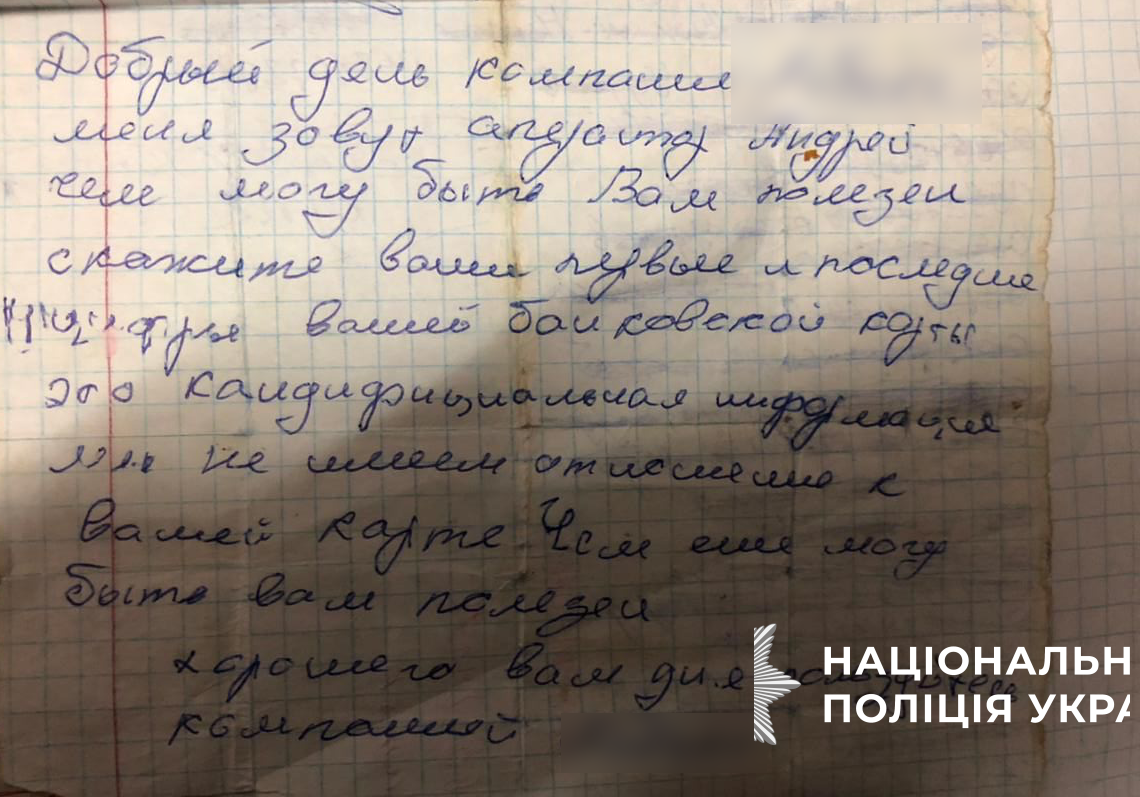 Добрый день компания
меня зовут аператор Андрей
чем могу быть Вам полезен
скажите ваши первые и последние
цифры вашей банковской карты
это кандидифициальная информация
мы не имеем отношение к
вашей карте Чем еше могу
быть вам полезен
хорошего вам дня
компанией
НАЦІОНАЛЬН
ПОЛІЦІЯ УКРА